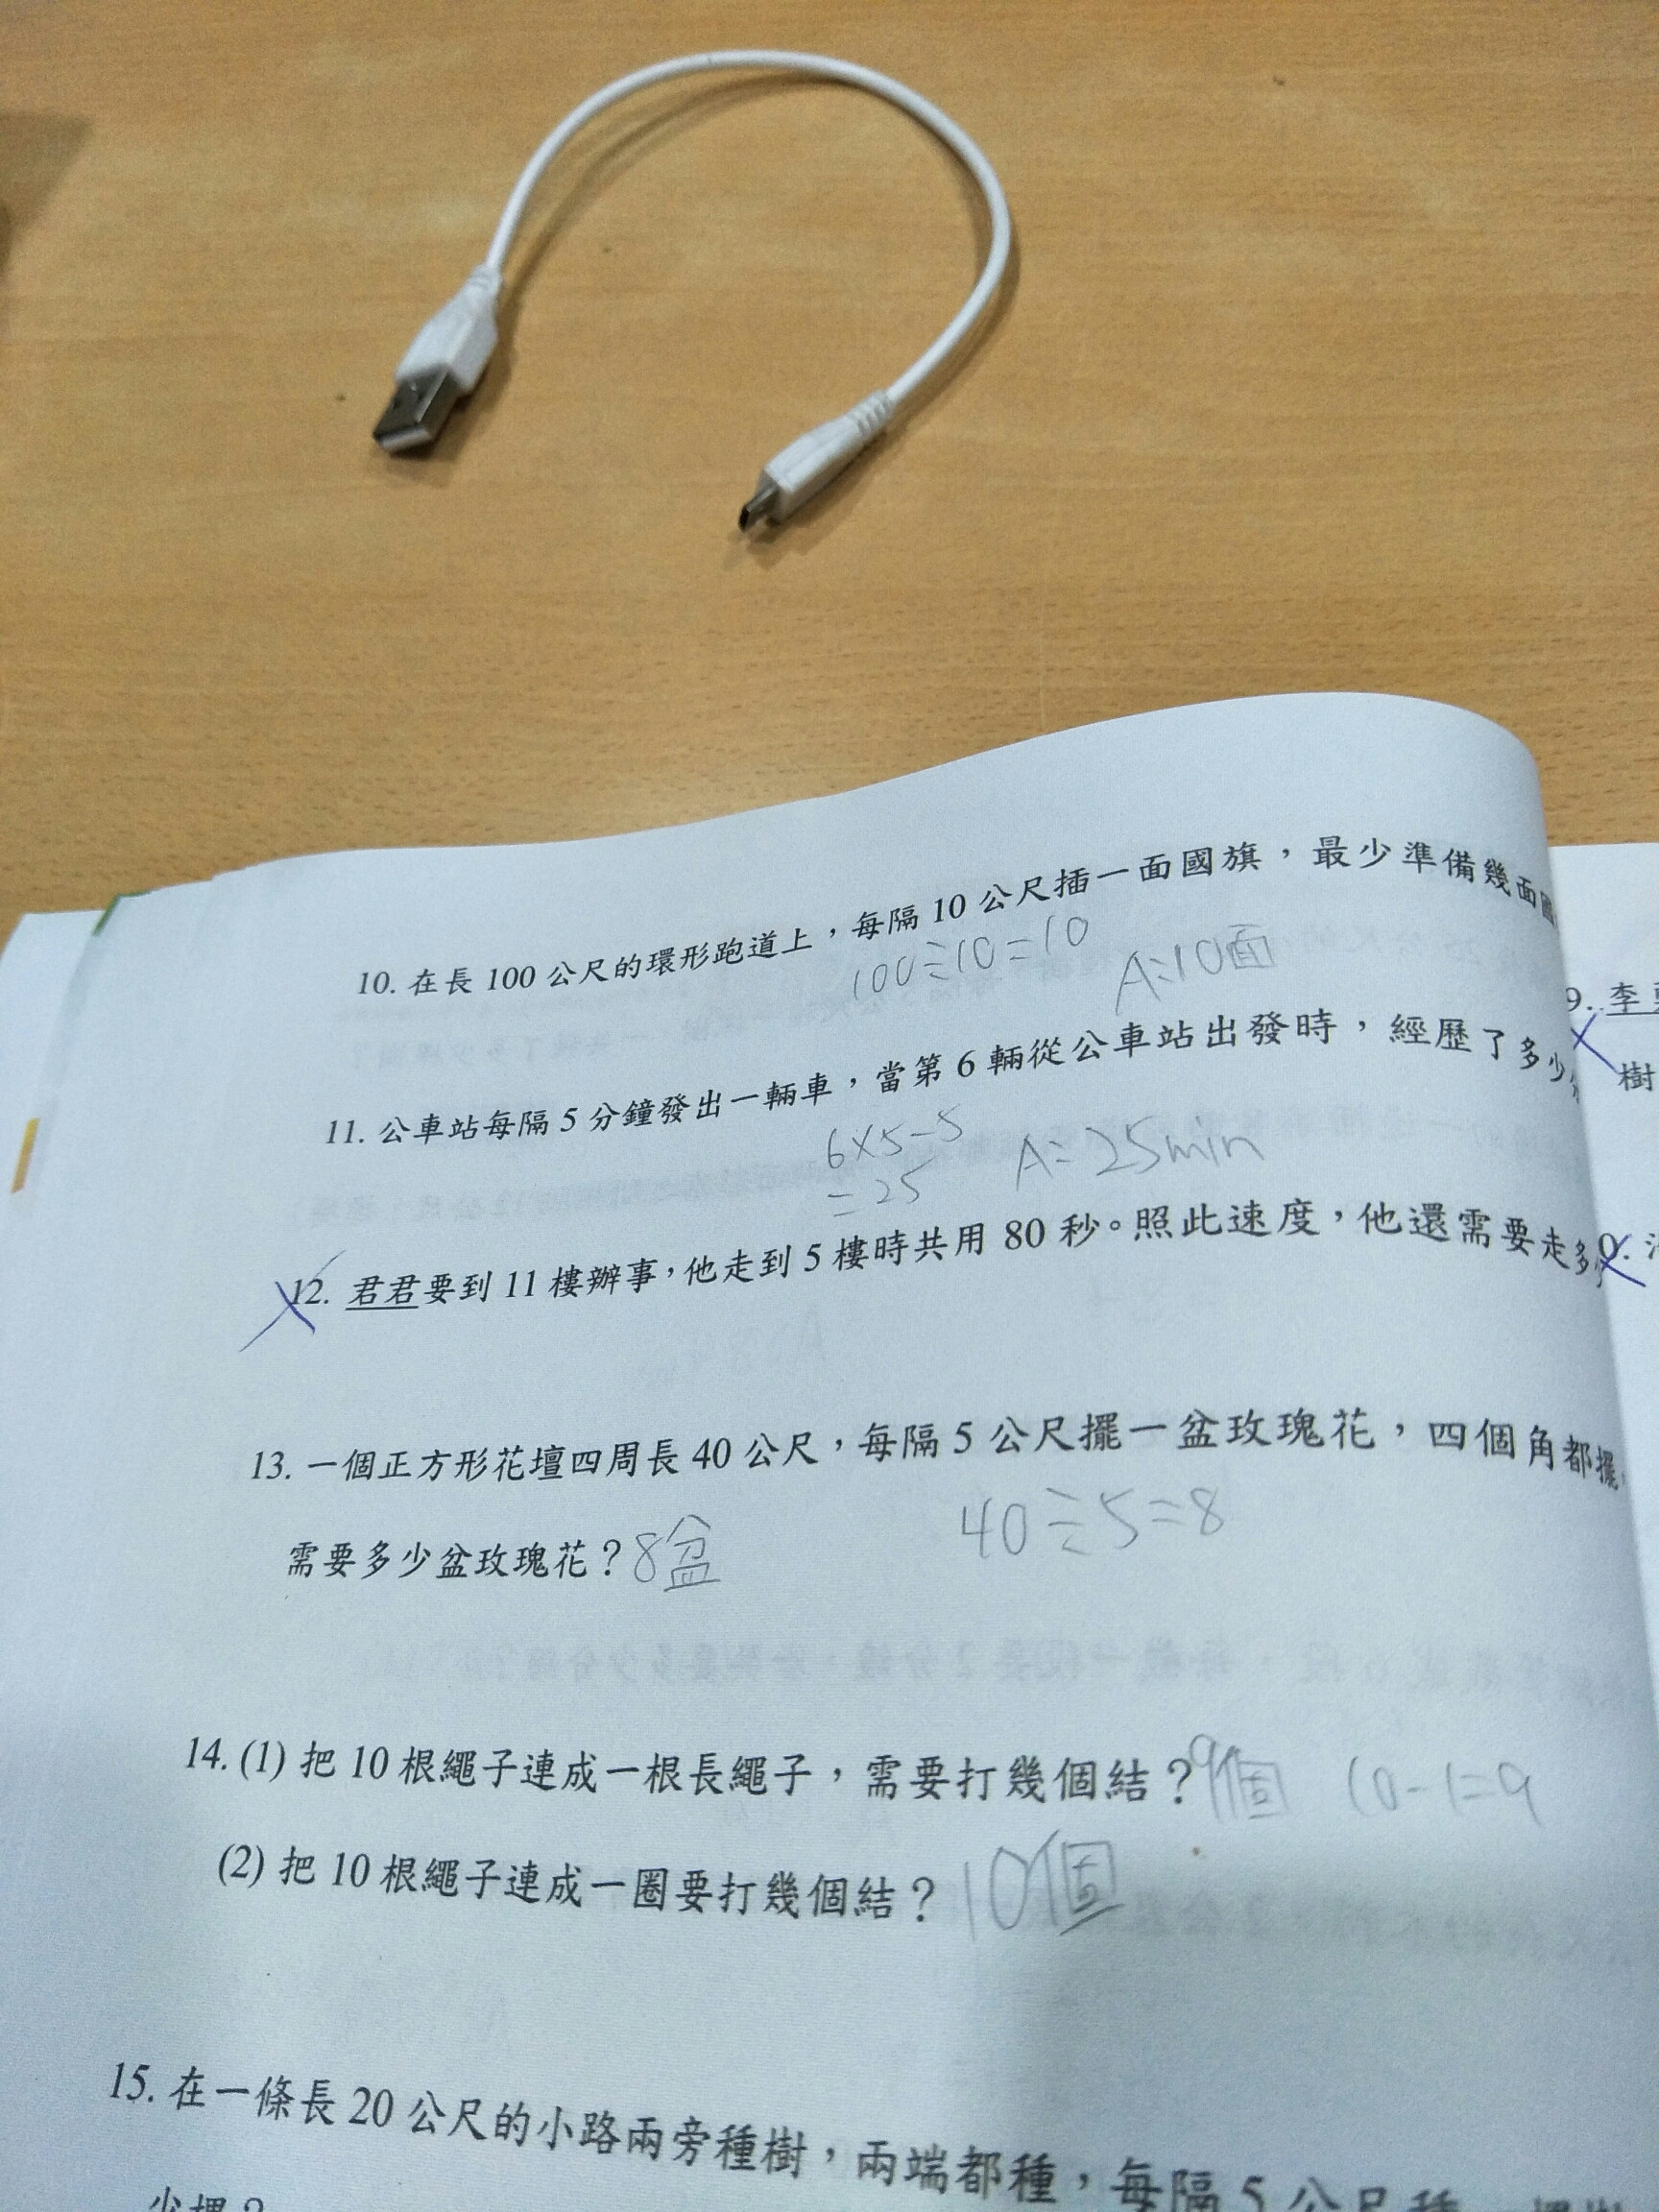 10. 在長 100 公尺的環形跑道上，每隔 10 公尺插一面國旗，最少準備幾面國
100÷10=10 A:10面
11. 公車站每隔 5 分鐘發出一輛車，當第 6 輛從公車站出發時，經歷了多少分
6×5-5
=25
A:25min
12. 君君要到 11 樓辦事，他走到 5 樓時共用 80 秒。照此速度，他還需要走多少
13. 一個正方形花壇四周長 40 公尺，每隔 5 公尺擺一盆玫瑰花，四個角都擺，
40÷5=8
需要多少盆玫瑰花？8盆
14. (1) 把 10 根繩子連成一根長繩子，需要打幾個結？9個 10-1=9
(2) 把 10 根繩子連成一圈要打幾個結？10個
15. 在一條長 20 公尺的小路兩旁種樹，兩端都種，每隔 5 公尺種一棵
少棵？
9. 李
樹
0.